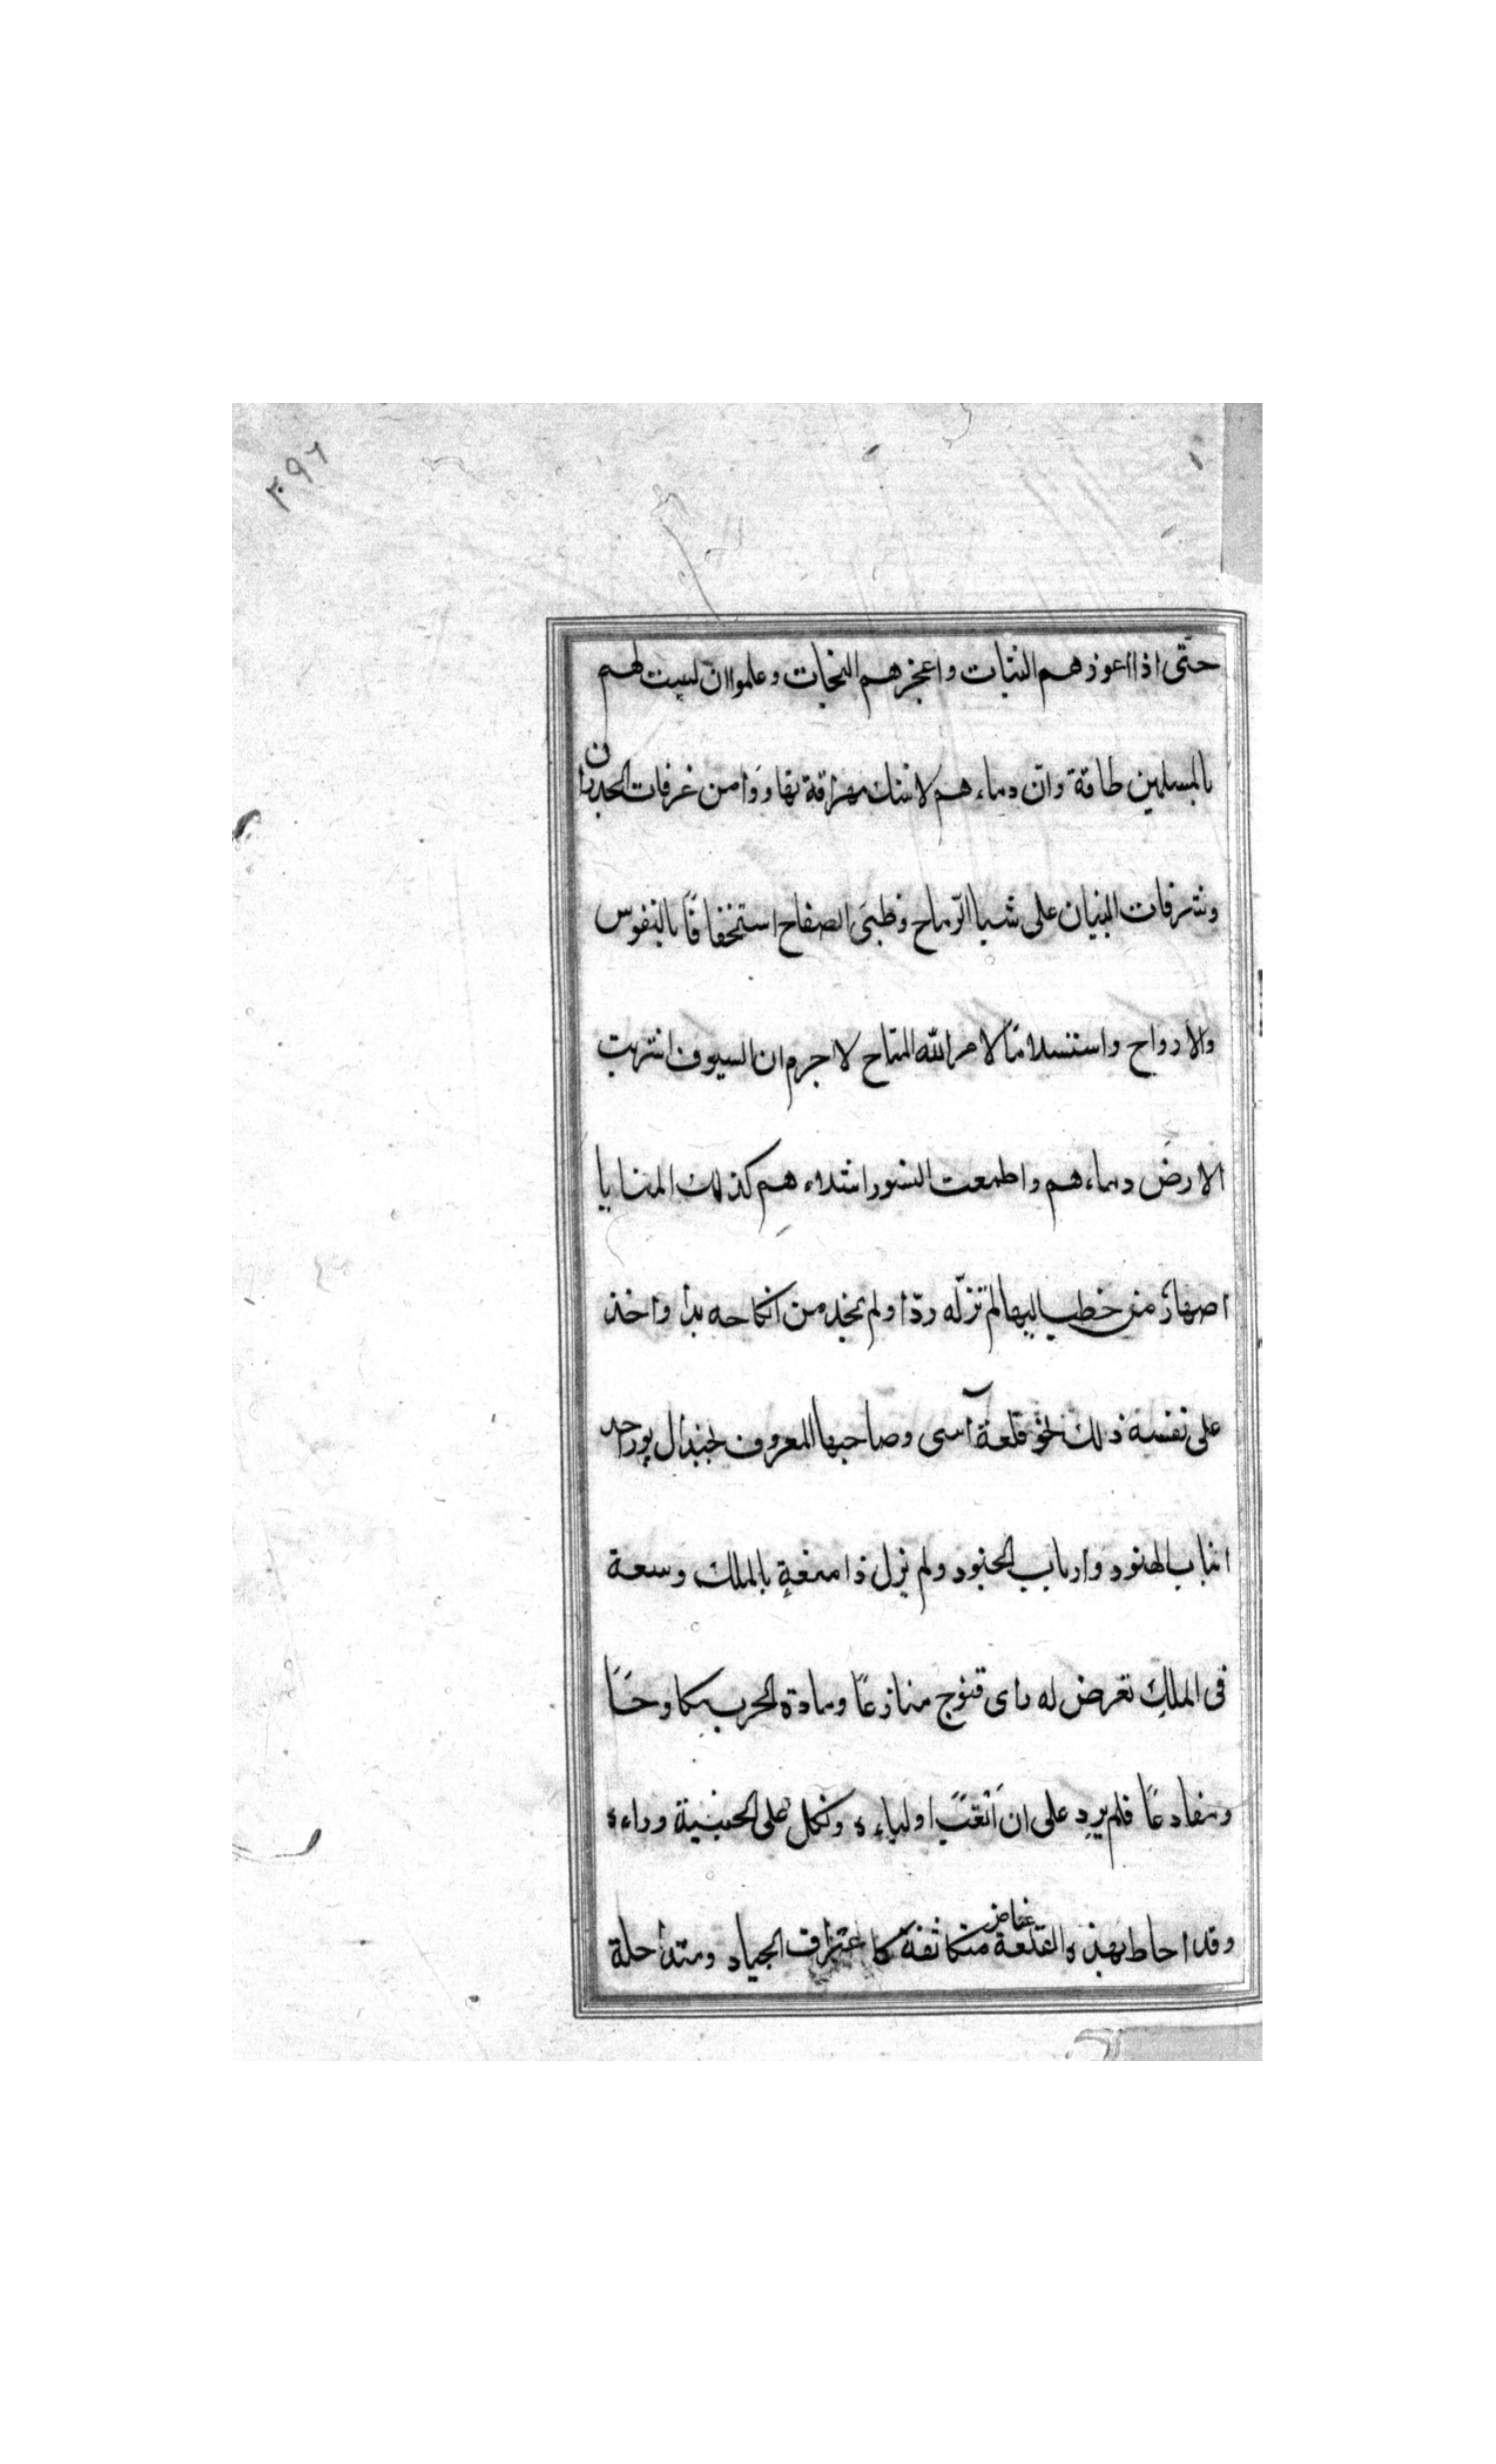 ٢٩٦
حتّى اذا اعوزهم الثبات واعجزهم النجات وعلموا ان ليست لهم
بالمسلمين طاقة وانّ دماءهم لاشك مهراقة تهاووا من غرفات الجدران
وشرفات البنيان على شبا الرّماح وظبى الصفاح استخفافًا بالنفوس
والارواح واستسلامًا لامر الله المتاح لا جرم ان السيوف اشربت
الارض دماءهم واطمعت النسور اشلاءهم كذلك المنايا
اصهار من خطب اليها لم تزله ردّا ولم يجد من انكاحه بدا واخذ
على نفسه ذلك نحو قلعة آسى وصاحبها المعروف بجندال پور احد
انياب الهنود وارباب الجنود ولم يزل ذا منعةٍ بالملك وسعة
فى الملك تعرض له راى قنوج منازعًا ومادة الحرب مكاوحًا
ومقارعًا فلم يرد على ان اتعب اولياءه ونكل على الخيبة وراءه
وقد احاط بهذه القلعة غياض متكاثفة كاعتراف الجياد ومتداخلة